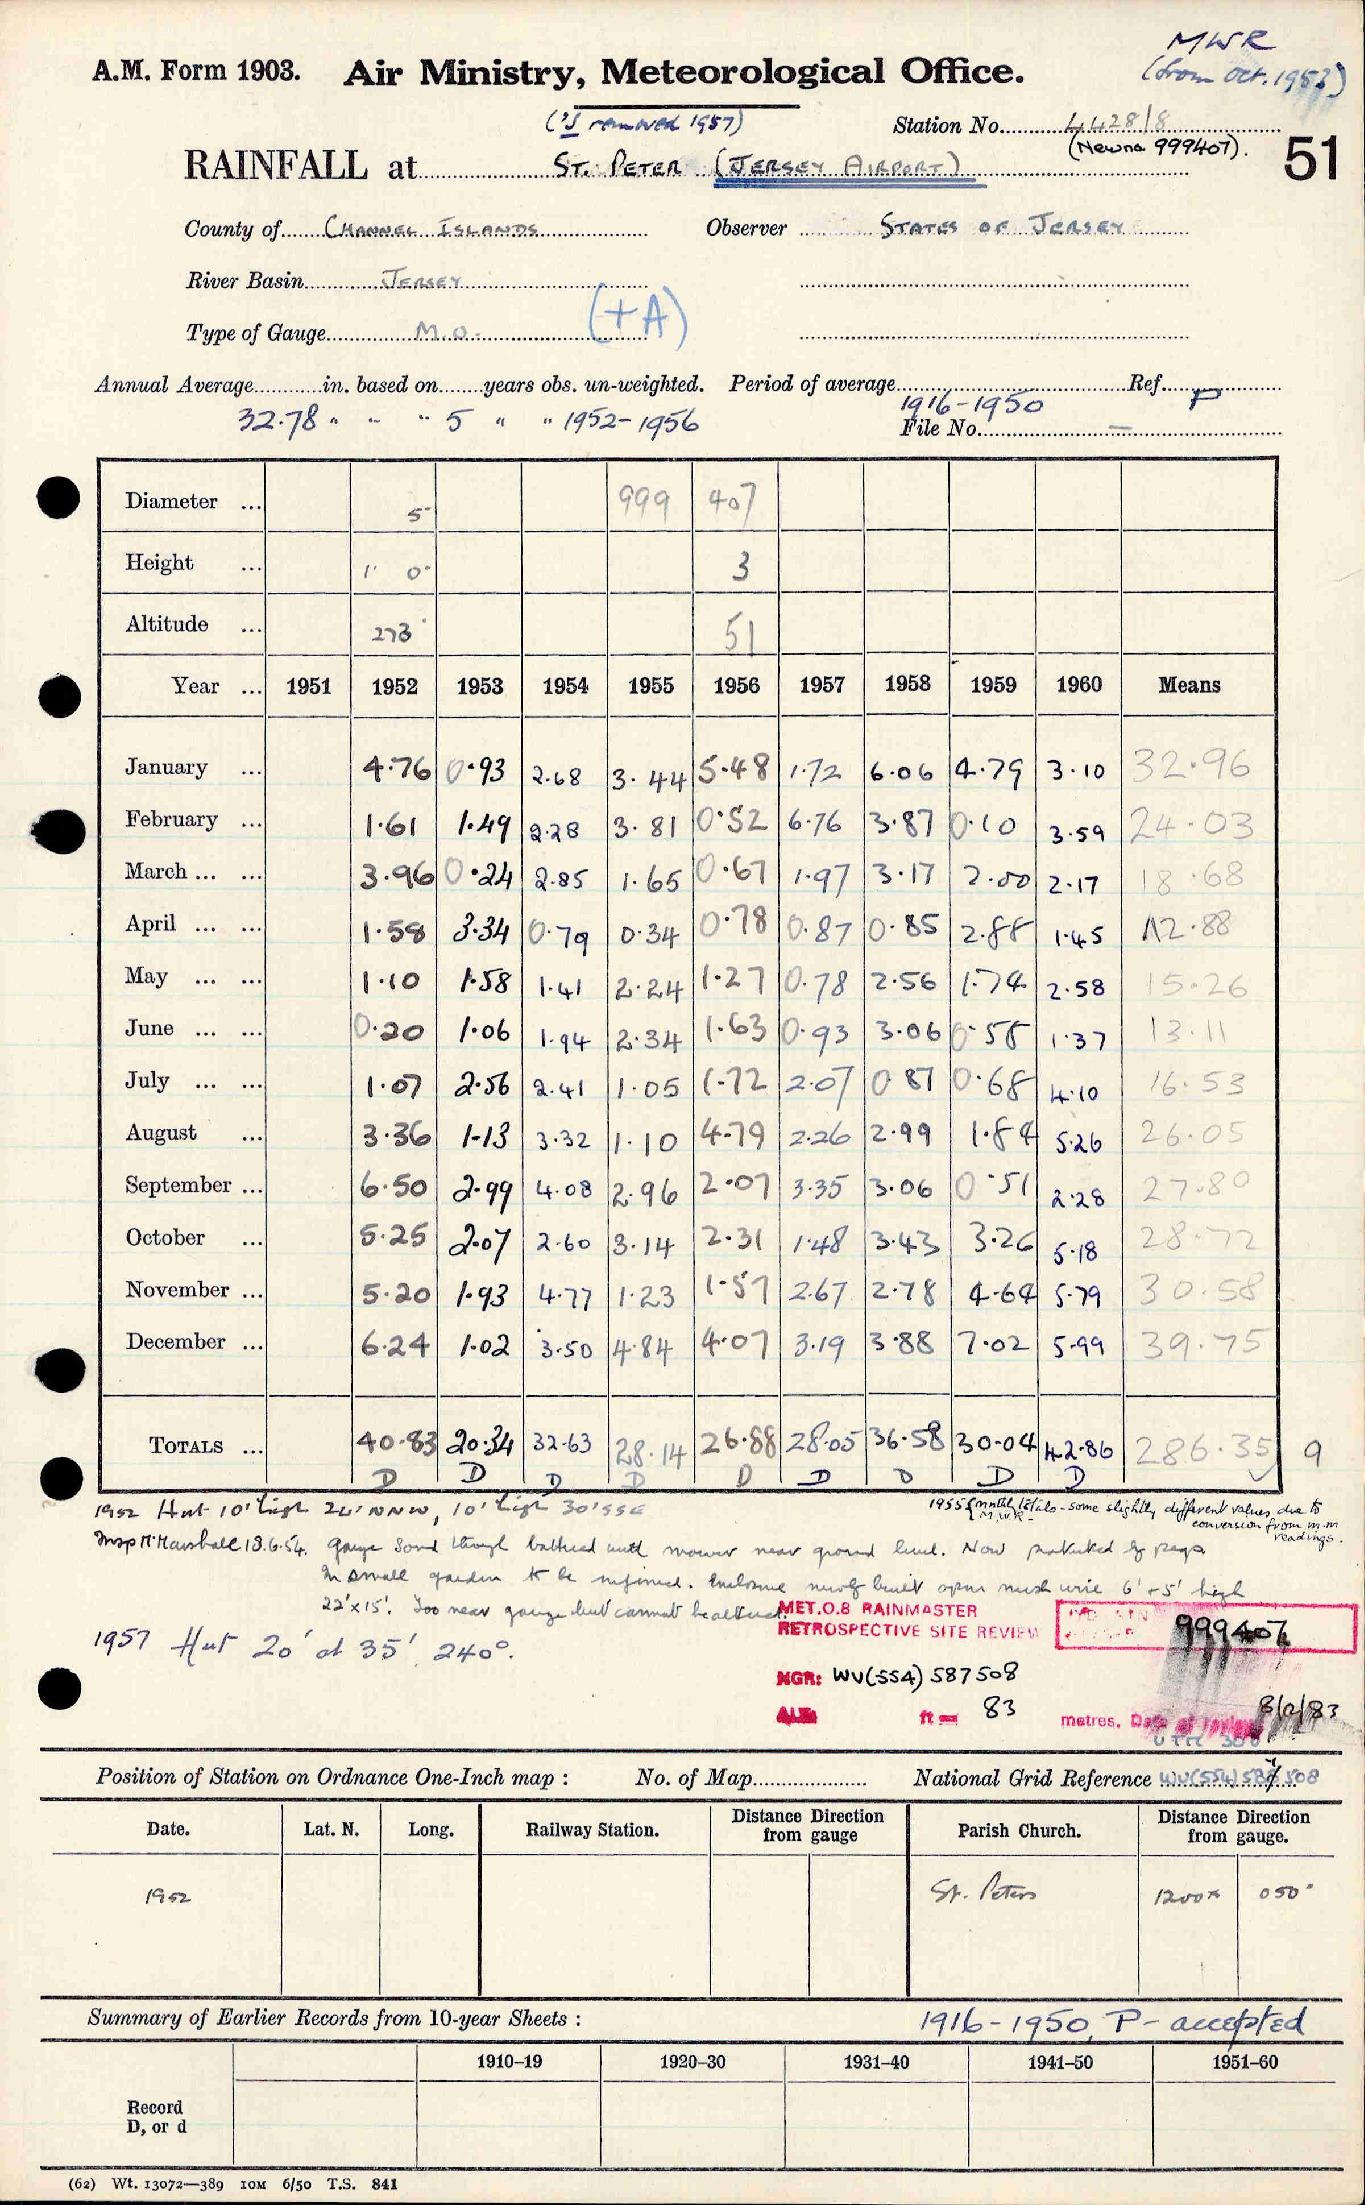 MWR
(from Oct. 1953)
A.M. Form 1903. Air Ministry, Meteorological Office.
removed 1957)
Station No. 4428/8
(New no 999407).
51
RAINFALL at ST. PETER (JERSEY AIRPORT)
County of CHANNEL ISLANDS Observer STATES OF JERSEY
River Basin JERSEY
Type of Gauge M.O. (+A)
Annual Average in. based on years obs. un-weighted. Period of average Ref. P
32.78 " " " 5 " " 1952-1956 1916-1950
File No. —
Diameter ... 5 999 407
Height ... 1' 0" 3
Altitude ... 273' 51
Year ... 1951 1952 1953 1954 1955 1956 1957 1958 1959 1960 Means
January ... 4.76 0.93 2.68 3.44 5.48 1.72 6.06 4.79 3.10 32.96
February ... 1.61 1.49 2.28 3.81 0.52 6.76 3.87 0.10 3.59 24.03
March ... ... 3.96 0.24 2.85 1.65 0.67 1.97 3.17 2.00 2.17 18.68
April ... ... 1.58 3.34 0.79 0.34 0.78 0.87 0.85 2.88 1.45 12.88
May ... ... 1.10 1.58 1.41 2.24 1.27 0.78 2.56 1.74 2.58 15.26
June ... ... 0.20 1.06 1.94 2.34 1.63 0.93 3.06 0.58 1.37 13.11
July ... ... 1.07 2.56 2.41 1.05 1.72 2.07 0.87 0.68 4.10 16.53
August ... 3.36 1.13 3.32 1.10 4.79 2.26 2.99 1.84 5.26 26.05
September ... 6.50 2.99 4.08 2.96 2.07 3.35 3.06 0.51 2.28 27.80
October ... 5.25 2.07 2.60 3.14 2.31 1.48 3.43 3.26 5.18 28.72
November ... 5.20 1.93 4.77 1.23 1.57 2.67 2.78 4.64 5.79 30.58
December ... 6.24 1.02 3.50 4.84 4.07 3.19 3.88 7.02 5.99 39.75
TOTALS ... 40.83 20.34 32.63 28.14 26.88 28.05 36.58 30.04 42.86 286.35 9
D D D D D D D D D
1952 Hut 10' high 24' NNW, 10' high 30' SSE
1955 { mnthly totals - some slightly different values due to
M.W.R. conversion from m.m
readings.
Insp Mr Marshall 18.6.54. gauge sound though battered until mower near ground level. Now protected by pegs
In small garden to be Enclosure newly built open mesh wire 6' + 5' high
22' x 15'. Too near gauge but cannot be altered.
1957 Hut 20' at 35' 240°.
MET.O.8 RAINMASTER
RETROSPECTIVE SITE REVIEW
999407
NGR: WV(554) 587508
ALT: ft = 83 metres. Date of review 8/2/83
Position of Station on Ordnance One-Inch map : No. of Map National Grid Reference WV(554) 587508
Date. Lat. N. Long. Railway Station. Distance Direction from gauge Parish Church. Distance Direction from gauge.
1952 St. Peters 1200x 050°
Summary of Earlier Records from 10-year Sheets : 1916-1950, P - accepted
1910–19 1920–30 1931–40 1941–50 1951–60
Record
D, or d
(62) Wt. 13072—389 10M 6/50 T.S. 841